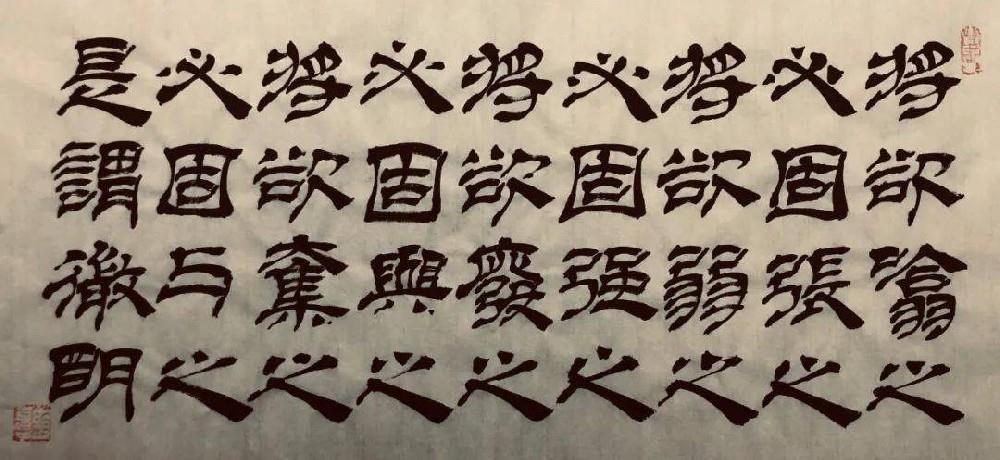 將欲潝之
必固張之
將欲弱之
必固强之
將欲廢之
必固興之
將欲奪之
必固与之
是謂微明